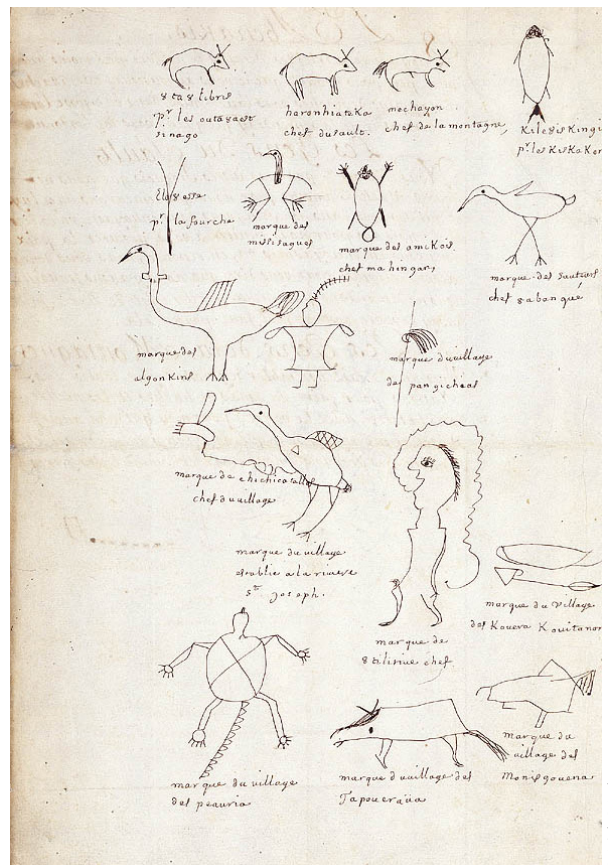 8ta8libris
pr les outa8acs
sinago
haronhiateka
chef du sault.
mechayon
chef de la montagne,
Kile8iskingi
pr les Kiskakon
Elo8esse
pr la fourche
marque des
missisagues
marque des amikois
chef mahingan,
marque des sauteurs
chef 8aban gué
marque des
algonkins
marque du village
des pangicheas
marque de chichicatallo
chef du village
marque du village
establie a la riviere
st. joseph.
marque de
chef
marque du village
des Kouera Kouitanon
marque du village
des peauria
marque du village des
Tapoueraüa
marque du
village des
Monisgouena